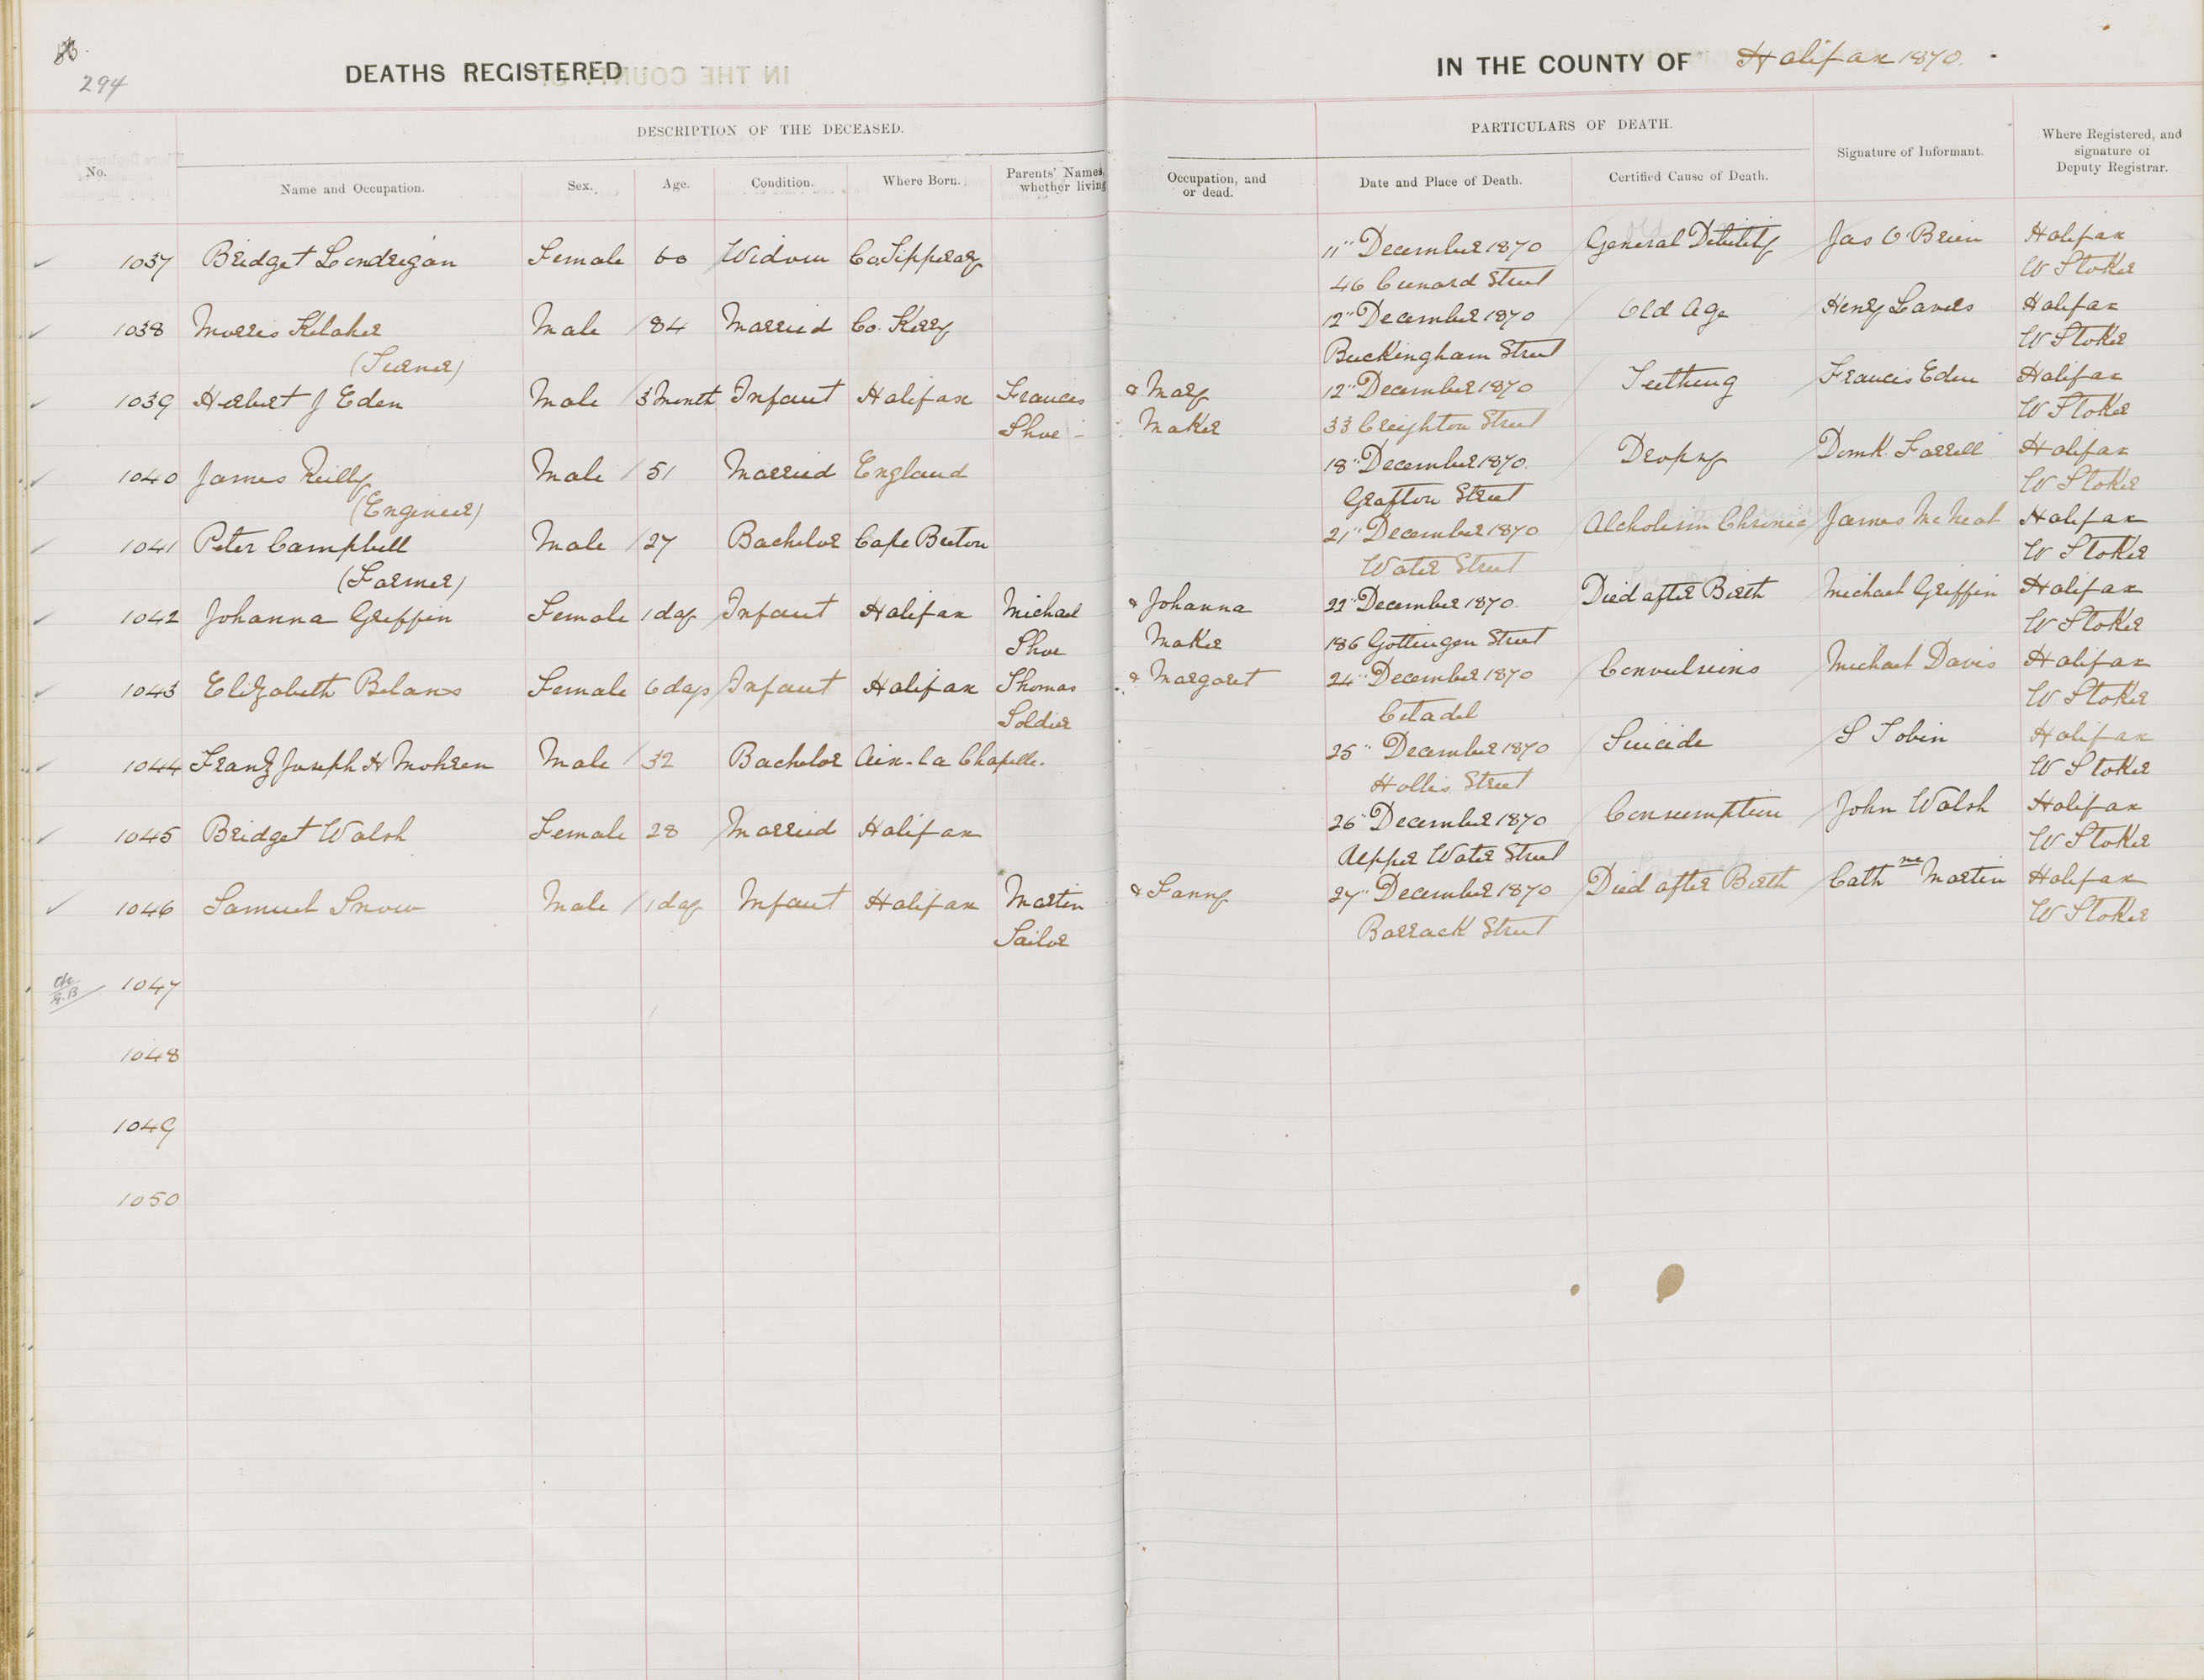 294
DEATHS REGISTERED IN THE COUNTY OF Halifax 1870.
DESCRIPTION OF THE DECEASED. PARTICULARS OF DEATH.
No. Name and Occupation. Sex. Age. Condition. Where Born. Parents' Names, whether living Occupation, and or dead. Date and Place of Death. Certified Cause of Death. Signature of Informant. Where Registered, and signature of Deputy Registrar.
1037 Bridget Londrigan Female 60 Widow Co Tipperary 11" December 1870 General Debility Jas O'Brien Halifax
46 Cunard Street W Stoker
1038 Morris Kelaher Male 84 Married Co. Kerry 12" December 1870 Old Age Henry Lavers Halifax
(Turner) Buckingham Street W Stoker
1039 Herbert J Eden Male 3 Month Infant Halifax Frances & Mary 12" December 1870 Teething Francis Eden Halifax
Shoe - Maker 33 Creighton Street W Stoker
1040 James Reilly Male 51 Married England 18" December 1870. Dropsy Domk. Farrell Halifax
(Engineer) Grafton Street W Stoker
1041 Peter Campbell Male 27 Bachelor Cape Breton 21" December 1870 Alcholism Chronic James McNeal Halifax
(Farmer) Water Street W Stoker
1042 Johanna Griffin Female 1 day Infant Halifax Michael & Johanna 22" December 1870. Died after Birth Michael Griffin Halifax
Shoe Maker 186 Gottingen Street W Stoker
1043 Elizabeth Belans Female 6 days Infant Halifax Thomas & Margaret 24" December 1870 Convulsions Michael Davis Halifax
Soldier Citadel W Stoker
1044 Franz Joseph H Mohren Male 32 Bachelor Aix-la Chapelle. 25" December 1870 Suicide S Tobin Halifax
Hollis Street W Stoker
1045 Bridget Walsh Female 28 Married Halifax 26" December 1870 Consumption John Walsh Halifax
Upper Water Street W Stoker
1046 Samuel Snow Male 1 day Infant Halifax Martin & Fanny 27" December 1870 Died after Birth Cathne Martin Halifax
Sailor Barrack Street W Stoker
1047
1048
1049
1050